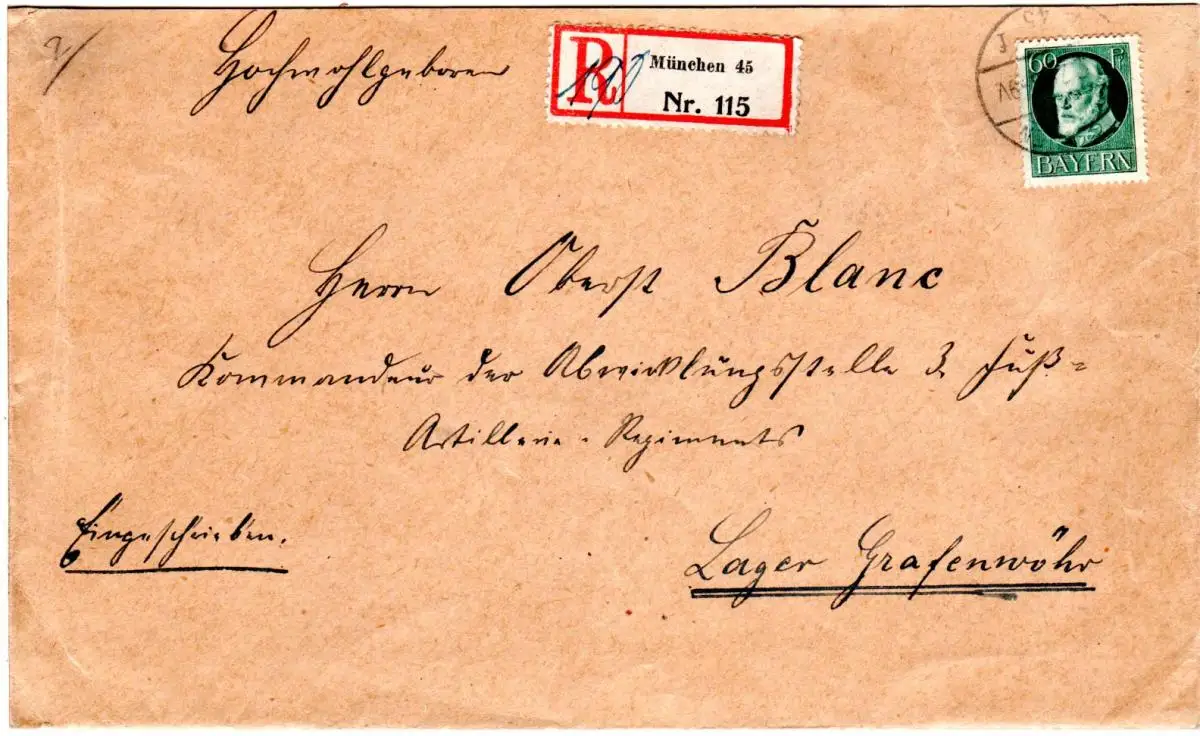 2/
Hochwohlgeboren
R
München 45
Nr. 115
45
60 Pf
BAYERN
Herrn Oberst Blanc
Kommandeur der Abwicklungsstelle 3. Fuß=
Artillerie-Regiments
Eingeschrieben.
Lager Grafenwöhr